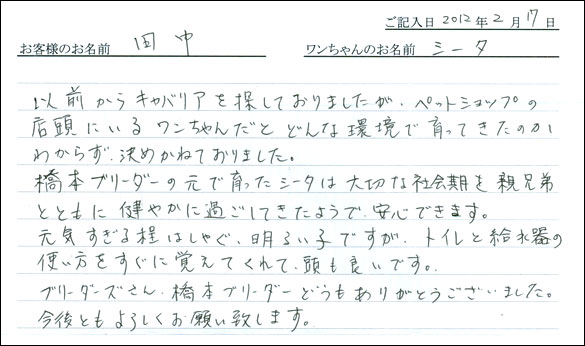 ご記入日 2012年2月17日
お客様のお名前 田中 ワンちゃんのお名前 シータ
以前からキャバリアを探しておりましたが、ペットショップの
店頭にいるワンちゃんだとどんな環境で育ってきたのか
わからず、決めかねておりました。
橋本ブリーダーの元で育ったシータは大切な社会期を親兄弟
とともに健やかに過ごしてきたようで、安心できます。
元気すぎる程はしゃぐ、明るい子ですが、トイレと給水器の
使い方をすぐに覚えてくれて、頭も良いです。
ブリーダーズさん、橋本ブリーダーどうもありがとうございました。
今後ともよろしくお願い致します。